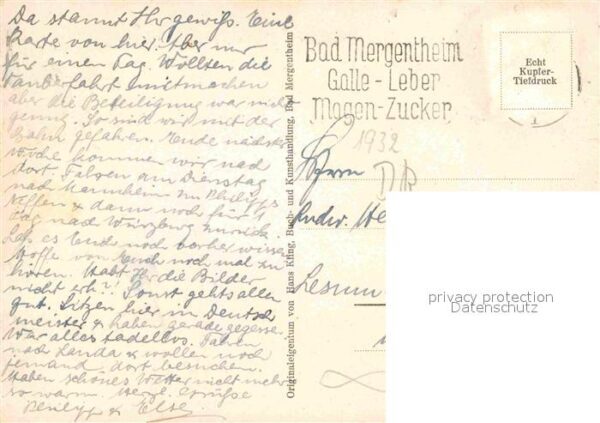 Da staunt Ihr gewiß. Eine
Karte von hier. Aber nur
für einen Tag. Wollten die
Tauberfahrt mitmachen
aber die Beteiligung war nicht
genug. So sind wir mit der
Bahn gefahren. Ende nächster
Woche kommen wir nach
dort. Fahren am Dienstag
nach Mannheim zu Philipps
Neffen & dann noch für 1
Tag nach Würzburg zurück.
Laß es Euch noch vorher wissen
Hoffe von Euch noch mal zu
hören. Habt Ihr die Bilder
nicht erh.? Sonst gehts allen
gut. Sitzen hier im Deutsch
meister & haben gerade gegessen
War alles tadellos. Fahren
nach Lauda & wollen noch
jemand dort besuchen.
Haben schönes Wetter nicht mehr
so warm. Herzl. Grüße
Philipp & Else
Originaleigentum von Hans Kling, Buch- und Kunsthandlung, Bad Mergentheim
Bad Mergentheim
Galle - Leber
Magen - Zucker
Echt
Kupfer-
Tiefdruck
1932
DR
Herrn
Ludw. He
Lesum
privacy protection
Datenschutz